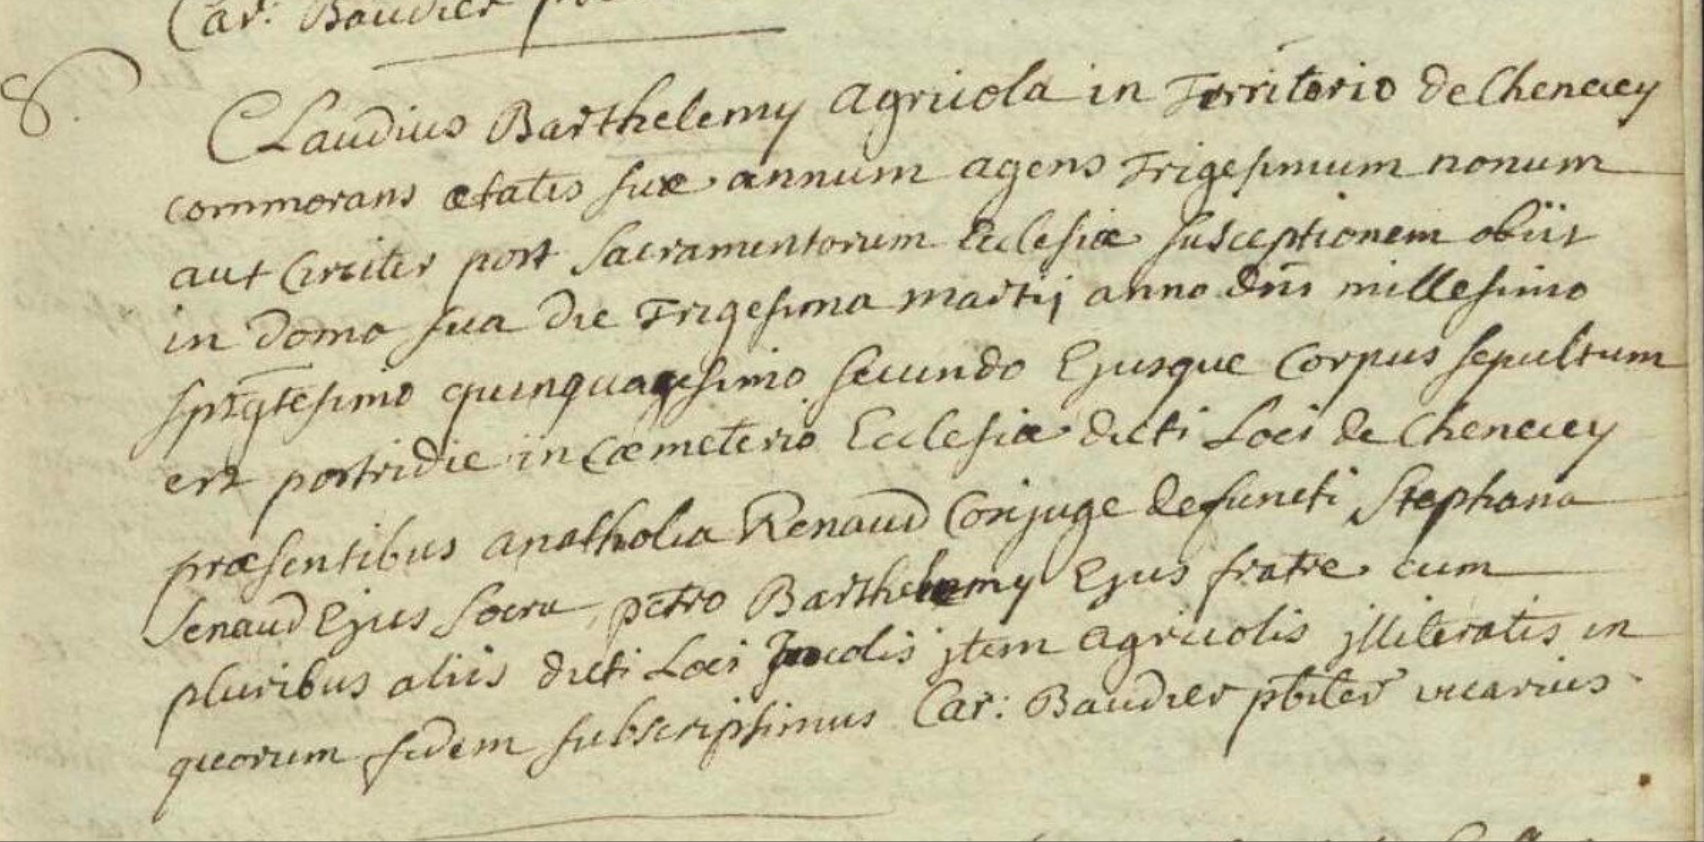 Car: Baudier
8.
Claudius Barthelemy agricola in Territorio de Chenecey
commorans ætatis suæ annum agens Trigesimum nonum
aut Circiter post Sacramentorum Ecclesiæ susceptionem obiit
in domo sua die Trigesima martij anno dni millesimo
sptgtesimo quinquagesimo secundo Ejusque Corpus sepultum
est postridie in Cæmeterio Ecclesiæ dicti Loci de Chenecey
præsentibus anatholia Renaud Conjuge defuncti Stephana
Senaud Ejus Socru petro Barthelemy Ejus fratre cum
pluribus aliis dicti Loci Incolis jtem agricolis jlliteratis in
quorum fidem subscripsimus Car: Baudier pbiter vicarius